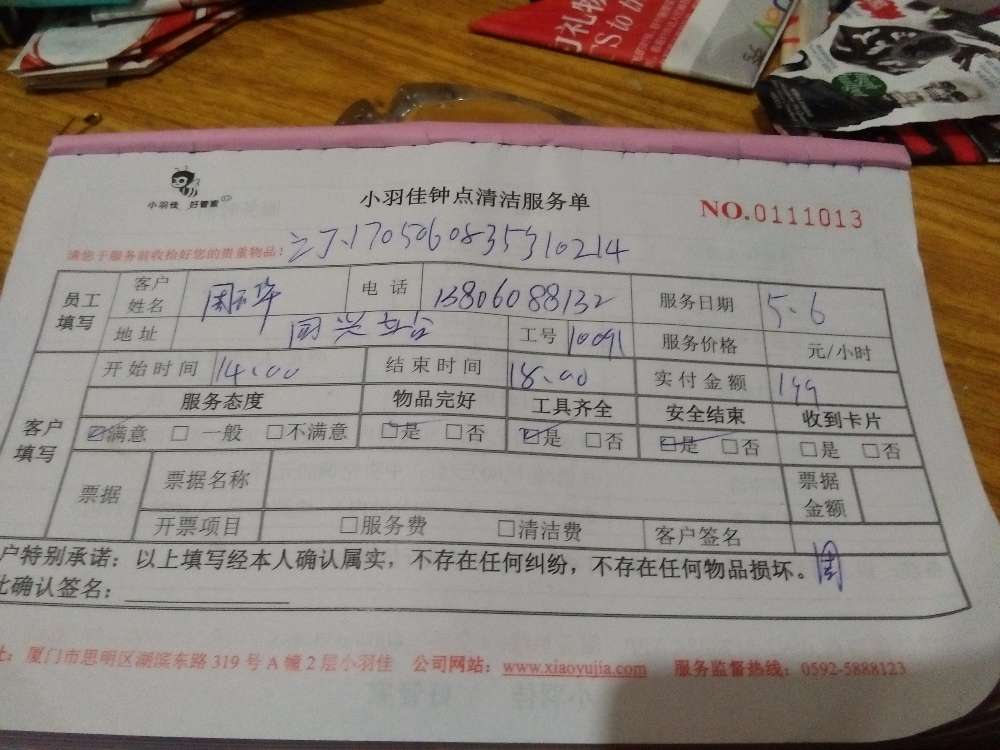 小羽佳 好管家
小羽佳钟点清洁服务单
NO.0111013
请您于服务前收拾好您的贵重物品!
1705060835310214
员工填写 客户姓名 周 华 电话 13806088132 服务日期 5.6
地址 国兴 台 工号 10091 服务价格 元/小时
客户填写 开始时间 14.00 结束时间 18.00 实付金额 199
服务态度 物品完好 工具齐全 安全结束 收到卡片
☑满意 □一般 □不满意 ☑是 □否 ☑是 □否 ☑是 □否 □是 □否
票据 票据名称 票据金额
开票项目 □服务费 □清洁费 客户签名 周
户特别承诺:以上填写经本人确认属实,不存在任何纠纷,不存在任何物品损坏。
此确认签名:
址:厦门市思明区湖滨东路319号A幢2层小羽佳 公司网站:www.xiaoyujia.com 服务监督热线:0592-5888123